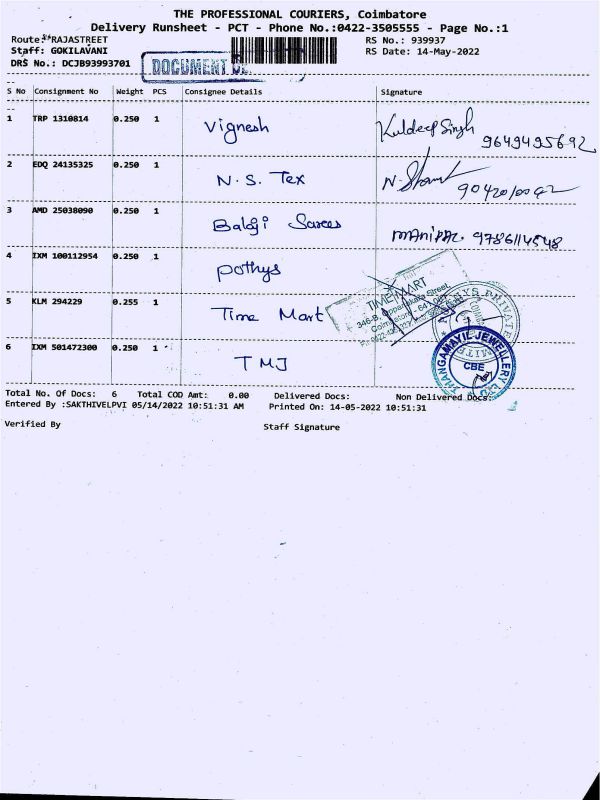 THE PROFESSIONAL COURIERS, Coimbatore
Delivery Runsheet - PCT - Phone No.:0422-3505555 - Page No.:1
Route:*RAJASTREET RS No.: 939937
Staff: GOKILAVANI RS Date: 14-May-2022
DRS No.: DCJB93993701 DOCUMENT
S No Consignment No Weight PCS Consignee Details Signature
1 TRP 1310814 0.250 1 Vignesh Kuldeep Singh 9649495692
2 EDQ 24135325 0.250 1 N.S. Tex
3 AMD 25038090 0.250 1 Balaji Sarees 9786114548
4 IXM 100112954 0.250 1 pothys
TIME MART
5 KLM 294229 0.255 1 Time Mart
6 IXM 501472300 0.250 1 TMJ
THANGAMAYIL JEWELLERY
CBE
Total No. Of Docs: 6 Total COD Amt: 0.00 Delivered Docs: Non Delivered Docs:
Entered By :SAKTHIVELPVI 05/14/2022 10:51:31 AM Printed On: 14-05-2022 10:51:31
Verified By Staff Signature